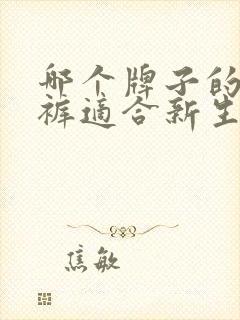 哪个牌子的
裤适合新生
焦敏